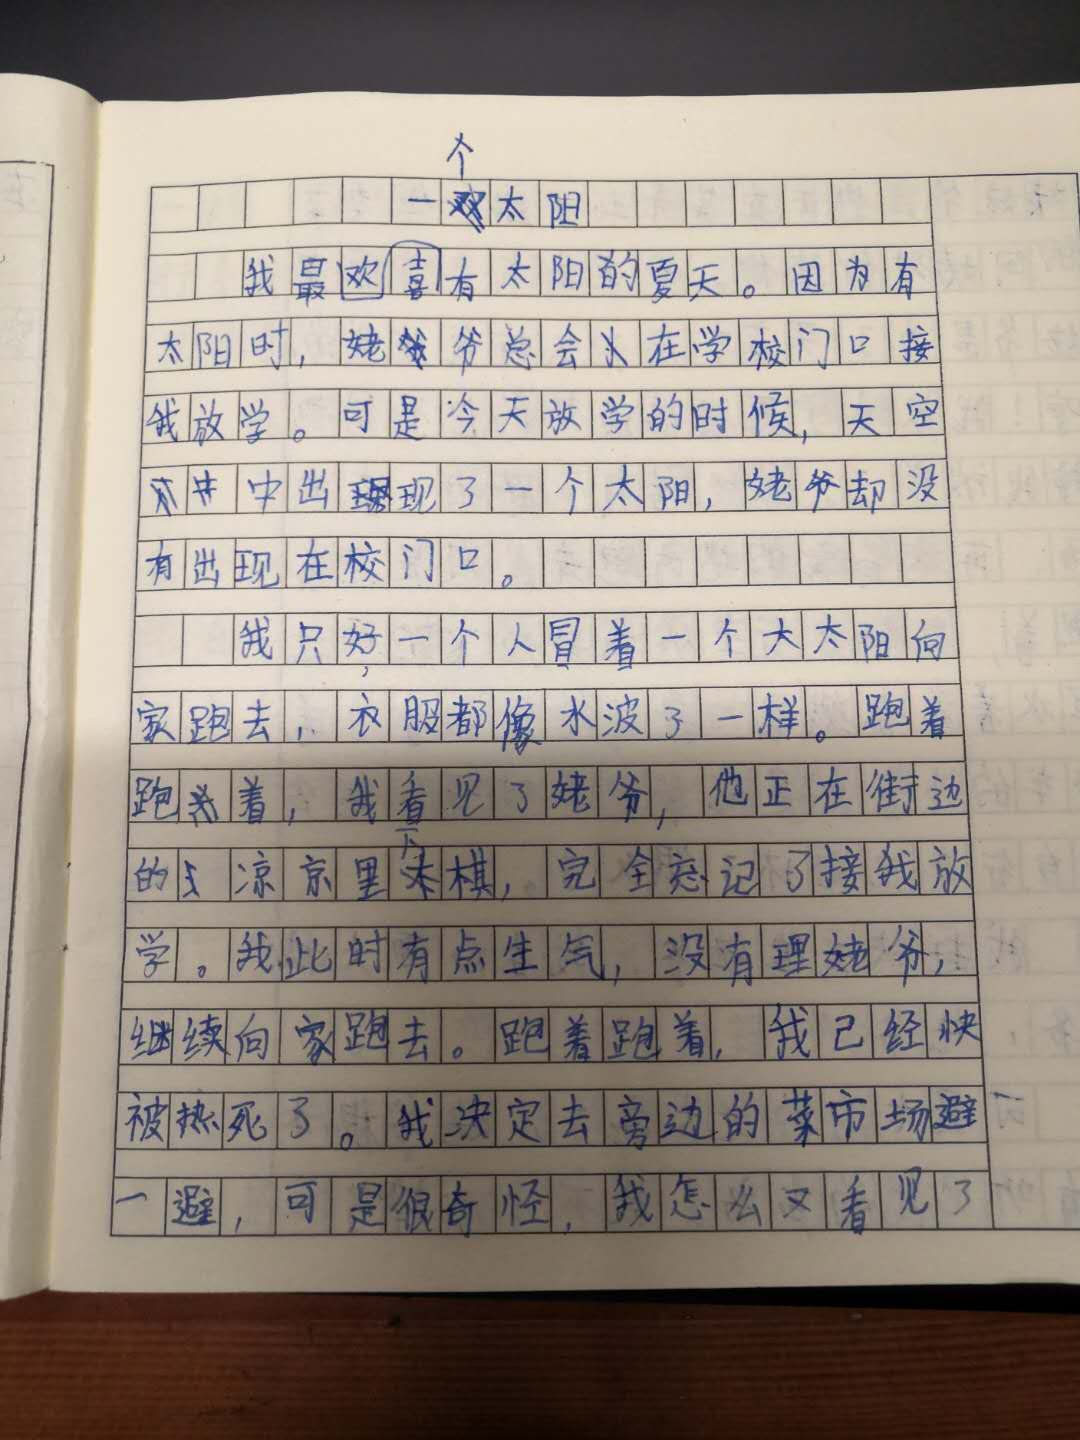 一个太阳
我最欢喜有太阳的夏天。因为有
太阳时，姥爷总会在学校门口接
我放学。可是今天放学的时候，天空
中出现了一个太阳，姥爷却没
有出现在校门口。
我只好一个人冒着一个大太阳向
家跑去，衣服都像水波了一样。跑着
跑着，我看见了姥爷，他正在街边
的凉京里下棋，完全忘记了接我放
学。我此时有点生气，没有理姥爷，
继续向家跑去。跑着跑着，我已经快
被热死了。我决定去旁边的菜市场避
一避，可是很奇怪，我怎么又看见了